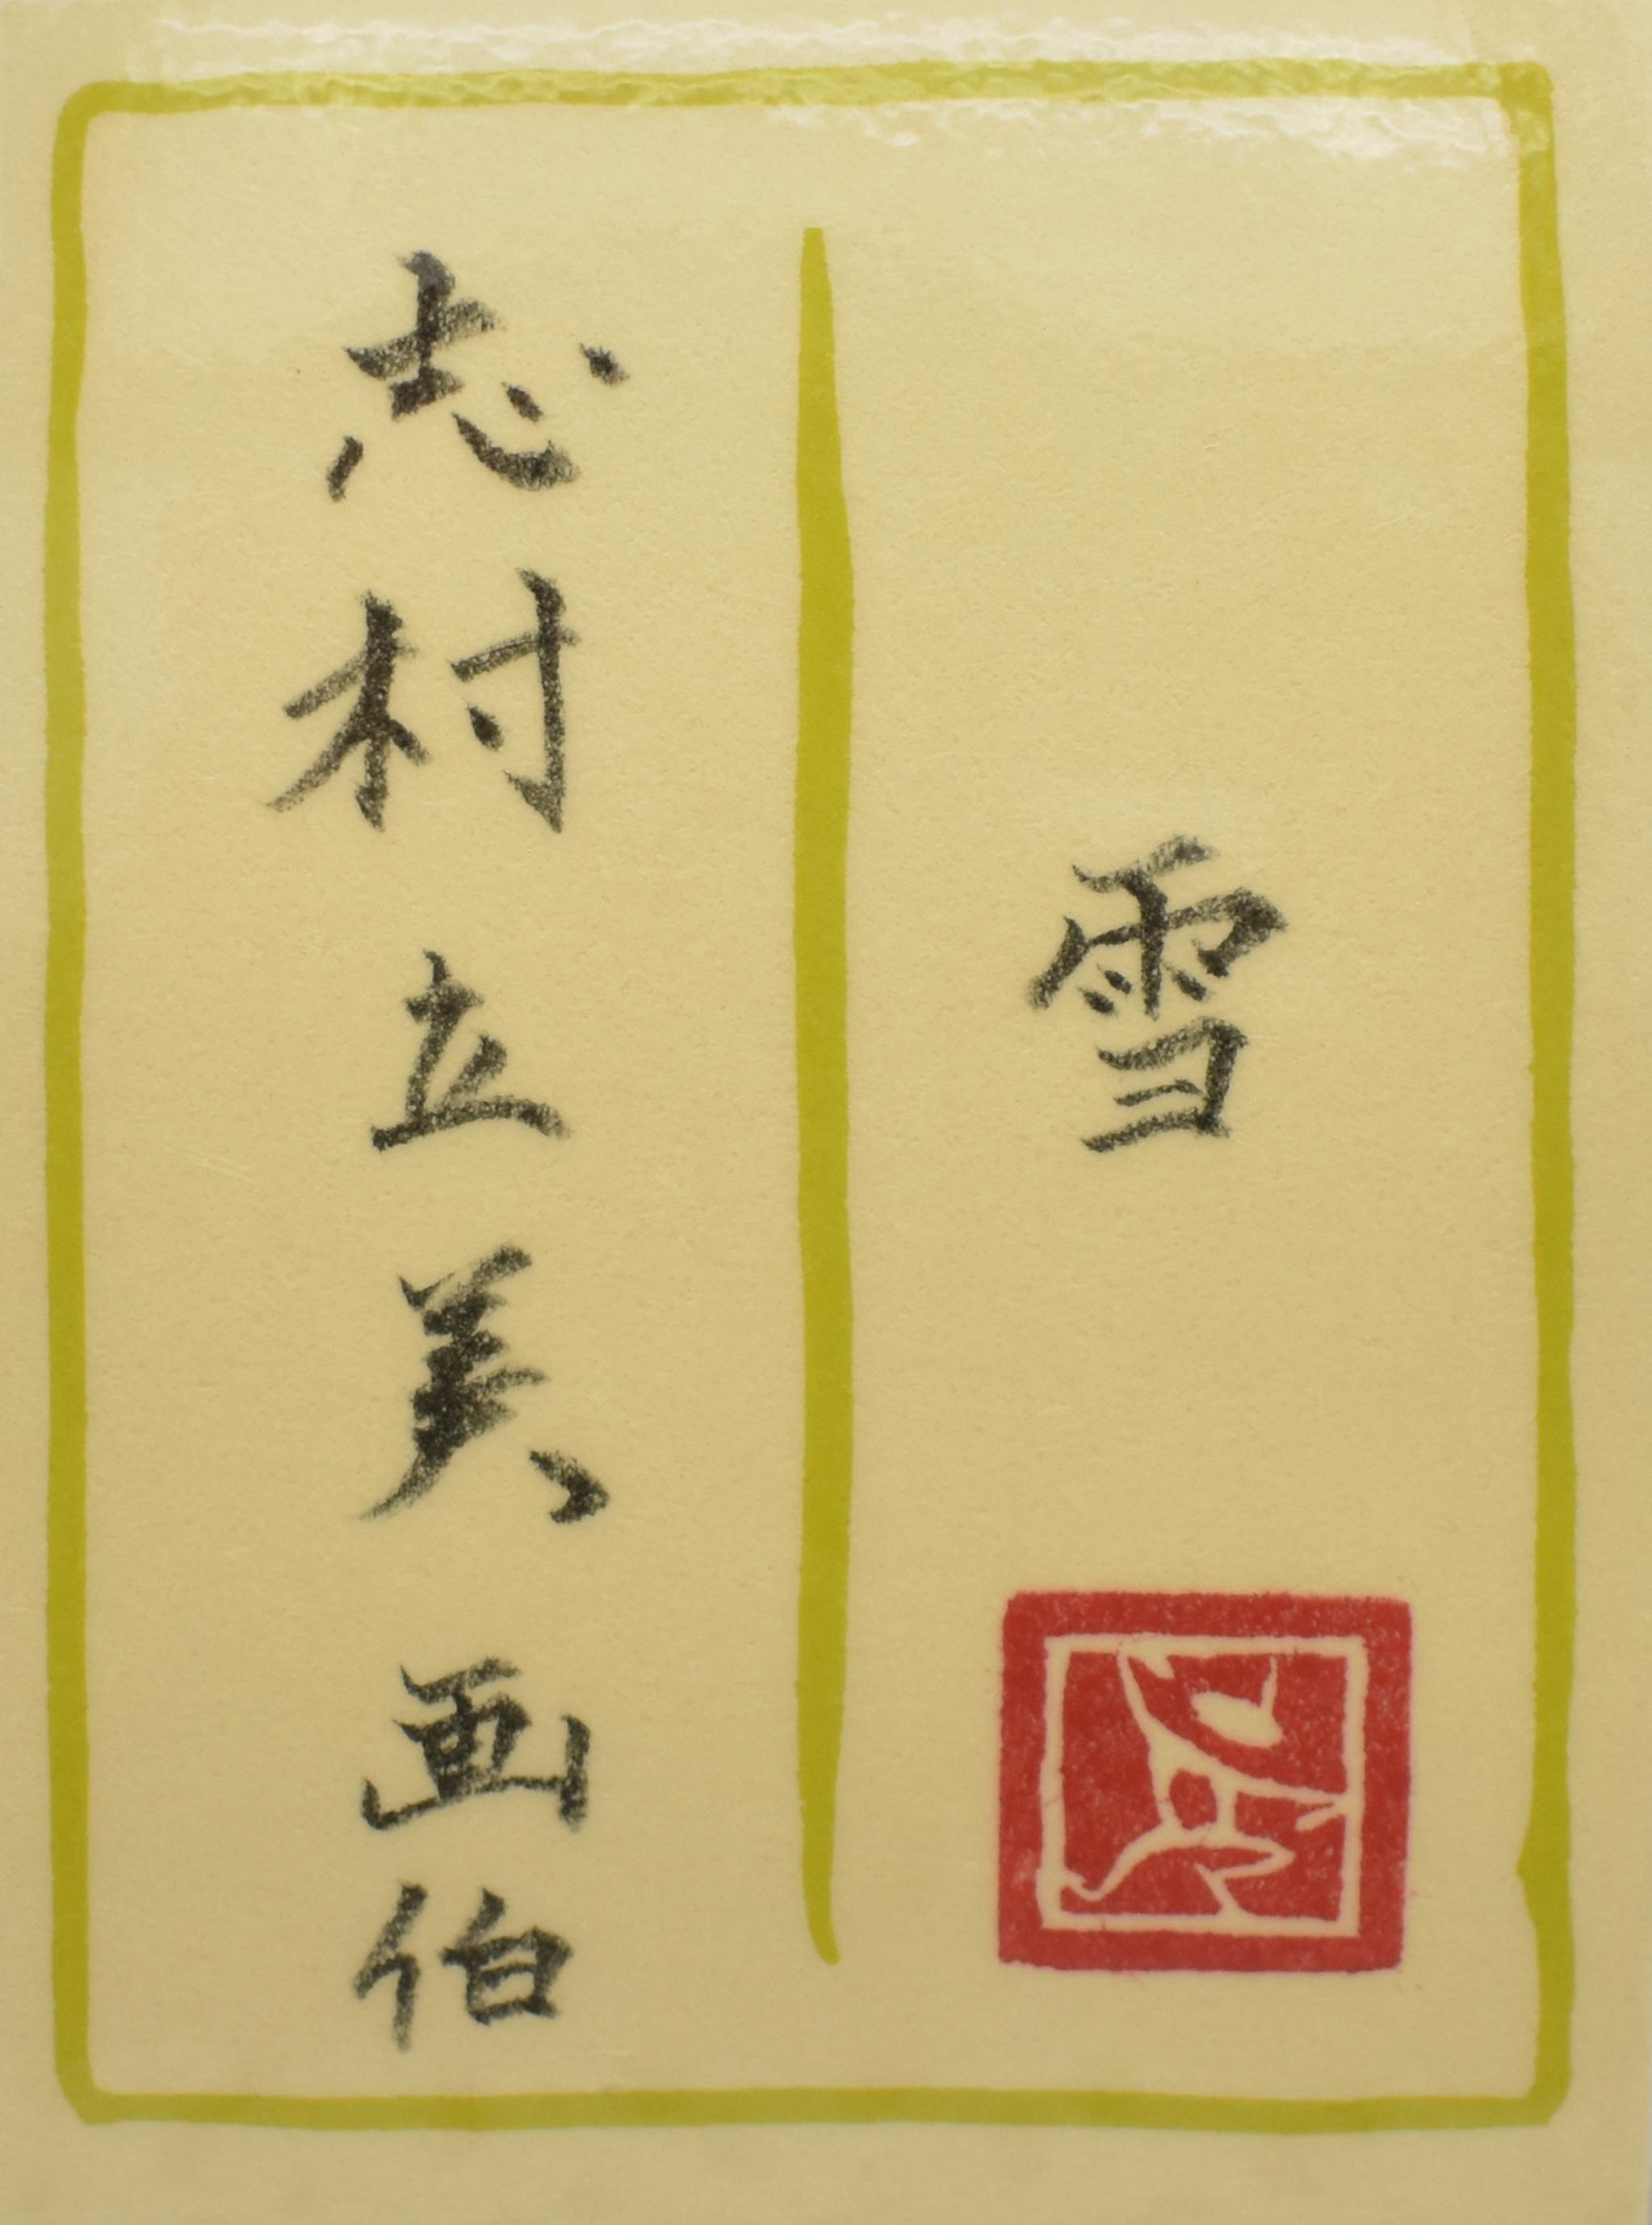 雪
志村立美画伯